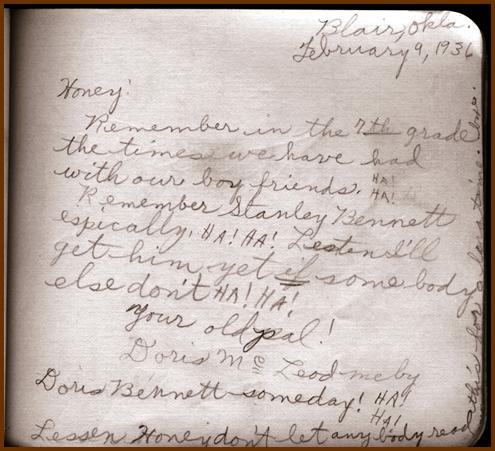 Blair, Okla.
February 9, 1936
Honey:
Remember in the 7th grade
the times we have had
with our boy friends. HA!
HA!
Remember Stanley Bennett
espically. HA! HA! Lesten I'll
get him yet if some body
else don't HA! HA!
Your old pal!
Doris Mc Leod me by
Doris Bennett someday! HA!
HA!
Lessen Honey don't let any body read
this for a
time.